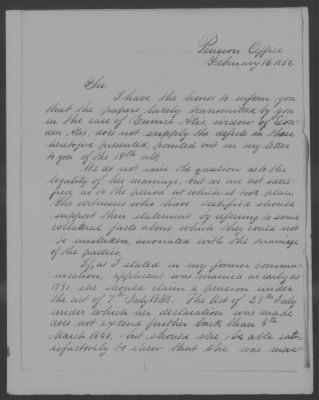 Pension Office
February 16 1850
Sir.
I have the honor to inform you
that the papers lately transmitted by you
in the case of Eunice Alis, widow of
Alis, does not supply the defects in those
heretofore presented, pointed out in my letter
to you of the 19th ult.
We do not raise the question as to the
legality of her marriage, but we are not satis-
fied as to the period at which it took place.
The witnesses who have testified should
support their statement by refering to some
collateral facts about which they could not
be mistaken, associated with the marriage
of the parties.
If, as I stated in my former commu-
nication, applicant was married as early as
1791, she should claim a pension under
the act of 7th July 1838. The Act of 29th July
under which her declaration was made
does not extend further back than 4th
March 1848, but should she be able satis-
isfactorily to shew that she was mar-